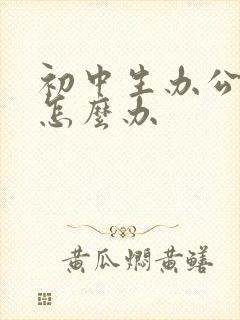 初中生办公
怎麼办
黄瓜焖黄鳝